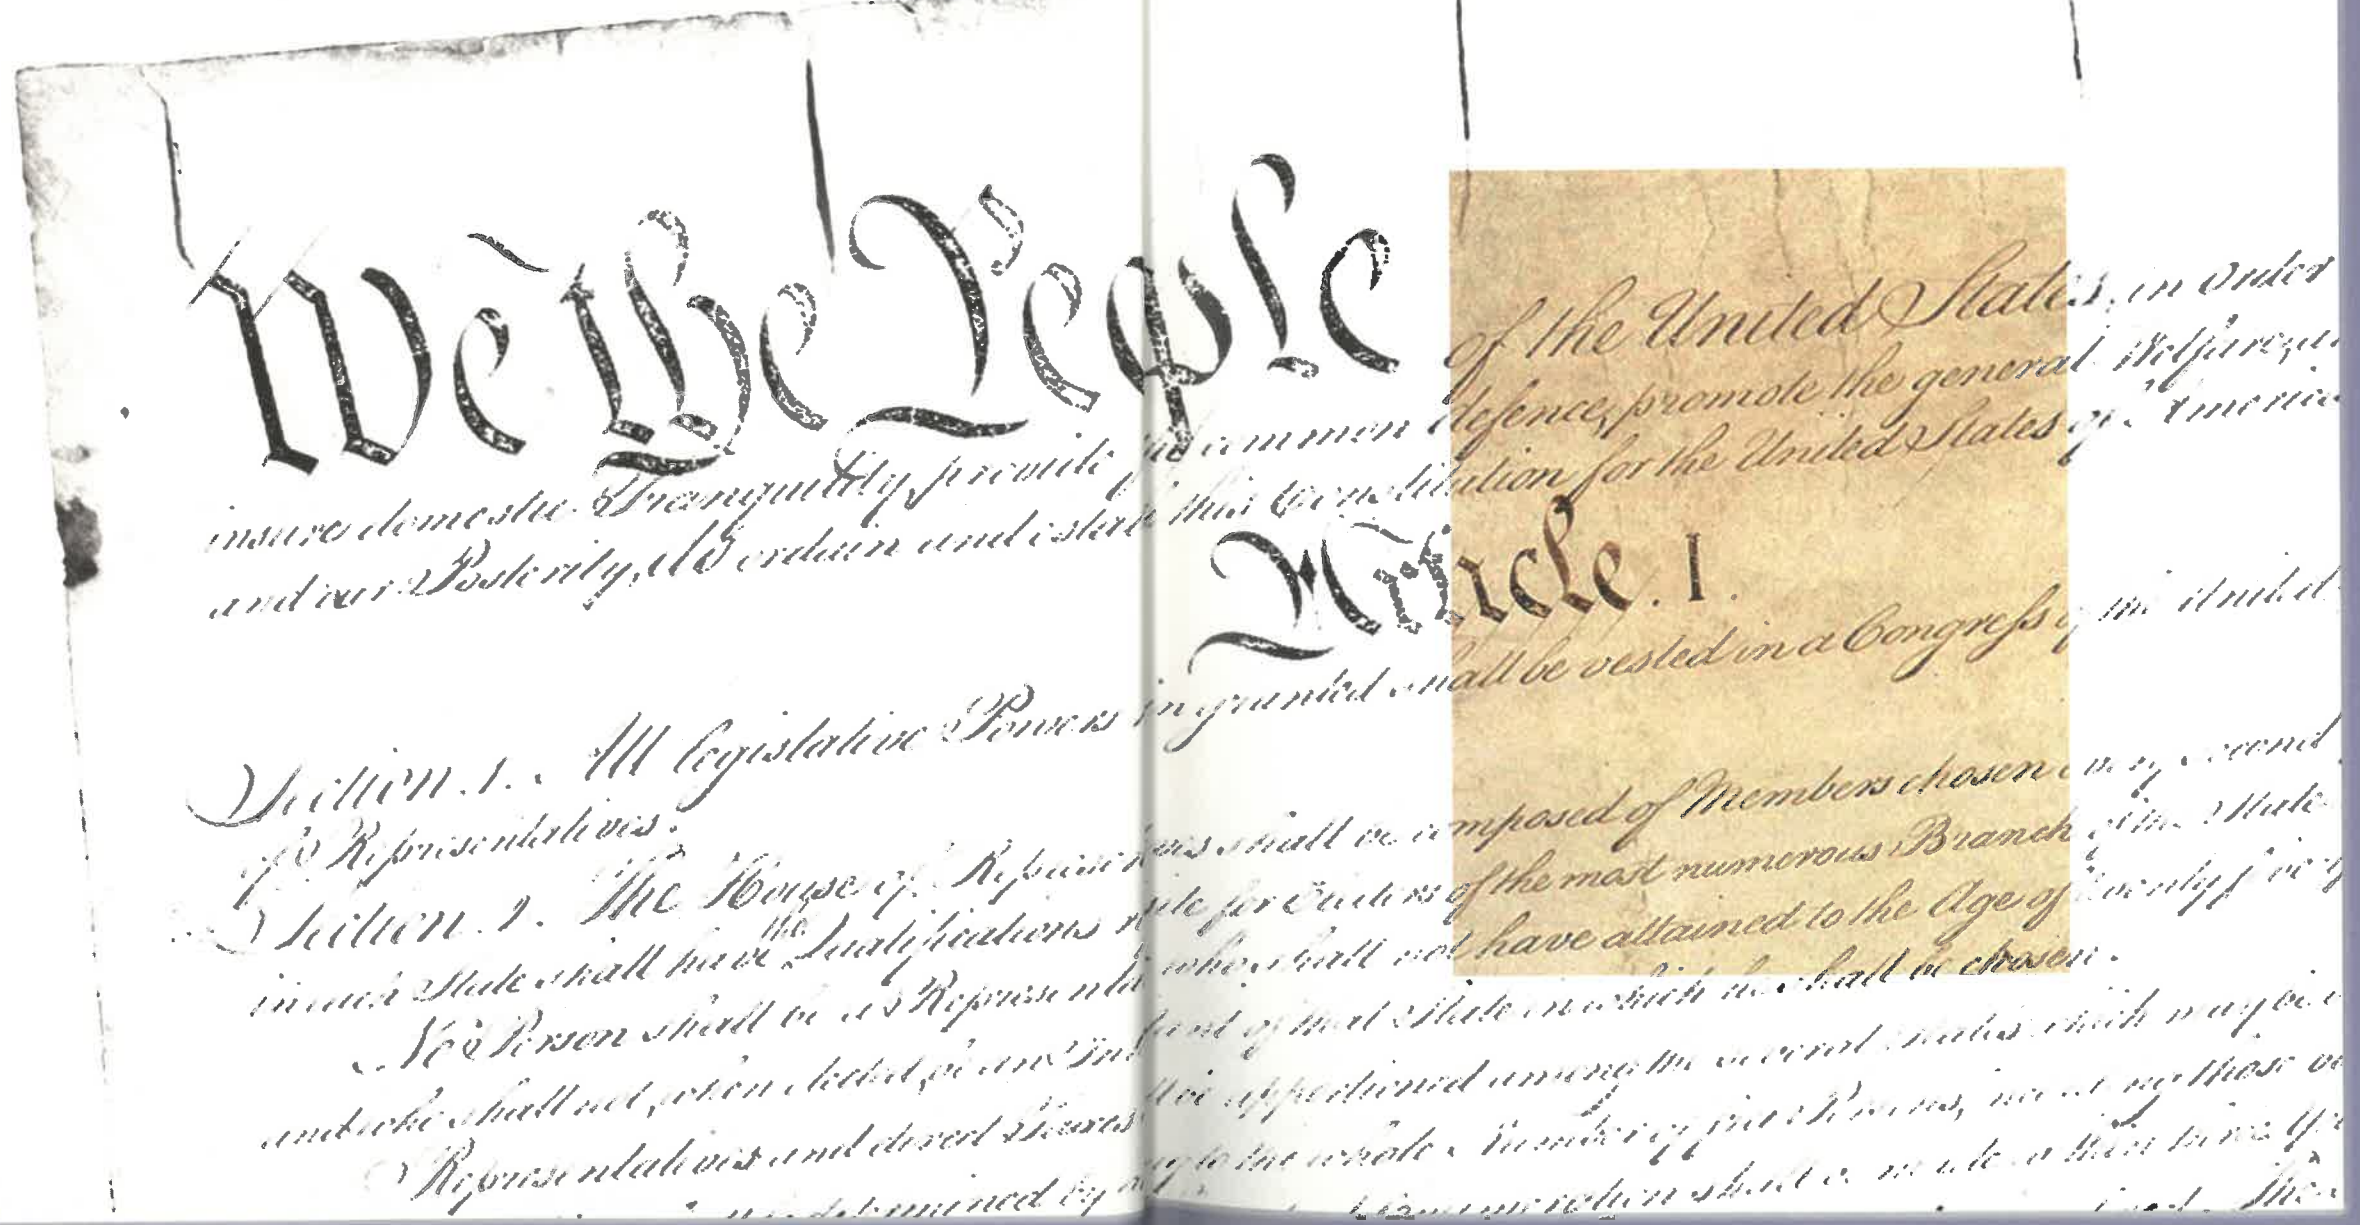 We the People of the United States, in Order
insure domestic Tranquility, provide common defence, promote the general Welfare,
and our Posterity, do ordain and establ this Constitution for the United States of America
Article. I.
Section. 1. All legislative Powers in granted shall be vested in a Congress of the United
of Representatives.
Section. 2. The House of Represen ves shall be composed of Members chosen every second
in each State shall have the Qualifications site for Electors of the most numerous Branch of the State
No Person shall be a Representa who shall not have attained to the Age of twenty five
and who shall not, when elected, be an Inh tant of that State in which he shall be chosen.
Representatives and direct Taxes ll be apportioned among the several States which may be
ng to the whole Number of free Persons, those
determined by Enumeration shall be made within three